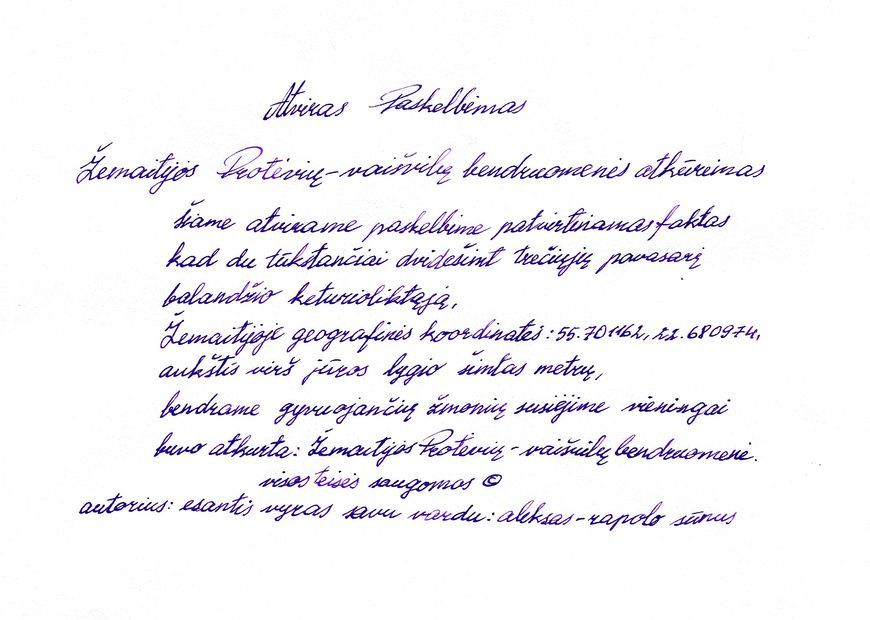 Atviras Paskelbimas
Žemaitijos Protėvių-vaišvilų bendruomenės atkūrimas
šiame atvirame paskelbime patvirtinamas faktas
kad du tūkstančiai dvidešimt trečiųjų pavasarį
balandžio keturioliktąją,
Žemaitijoje geografinės koordinatės: 55.701162, 22.680974,
aukštis virš jūros lygio šimtas metrų,
bendrame gyvuojančių žmonių susiėjime vieningai
buvo atkurta: Žemaitijos Protėvių-vaišvilų bendruomenė.
visos teisės saugomos ©
autorius: esantis vyras savu vardu: aleksas-rapolo sūnus